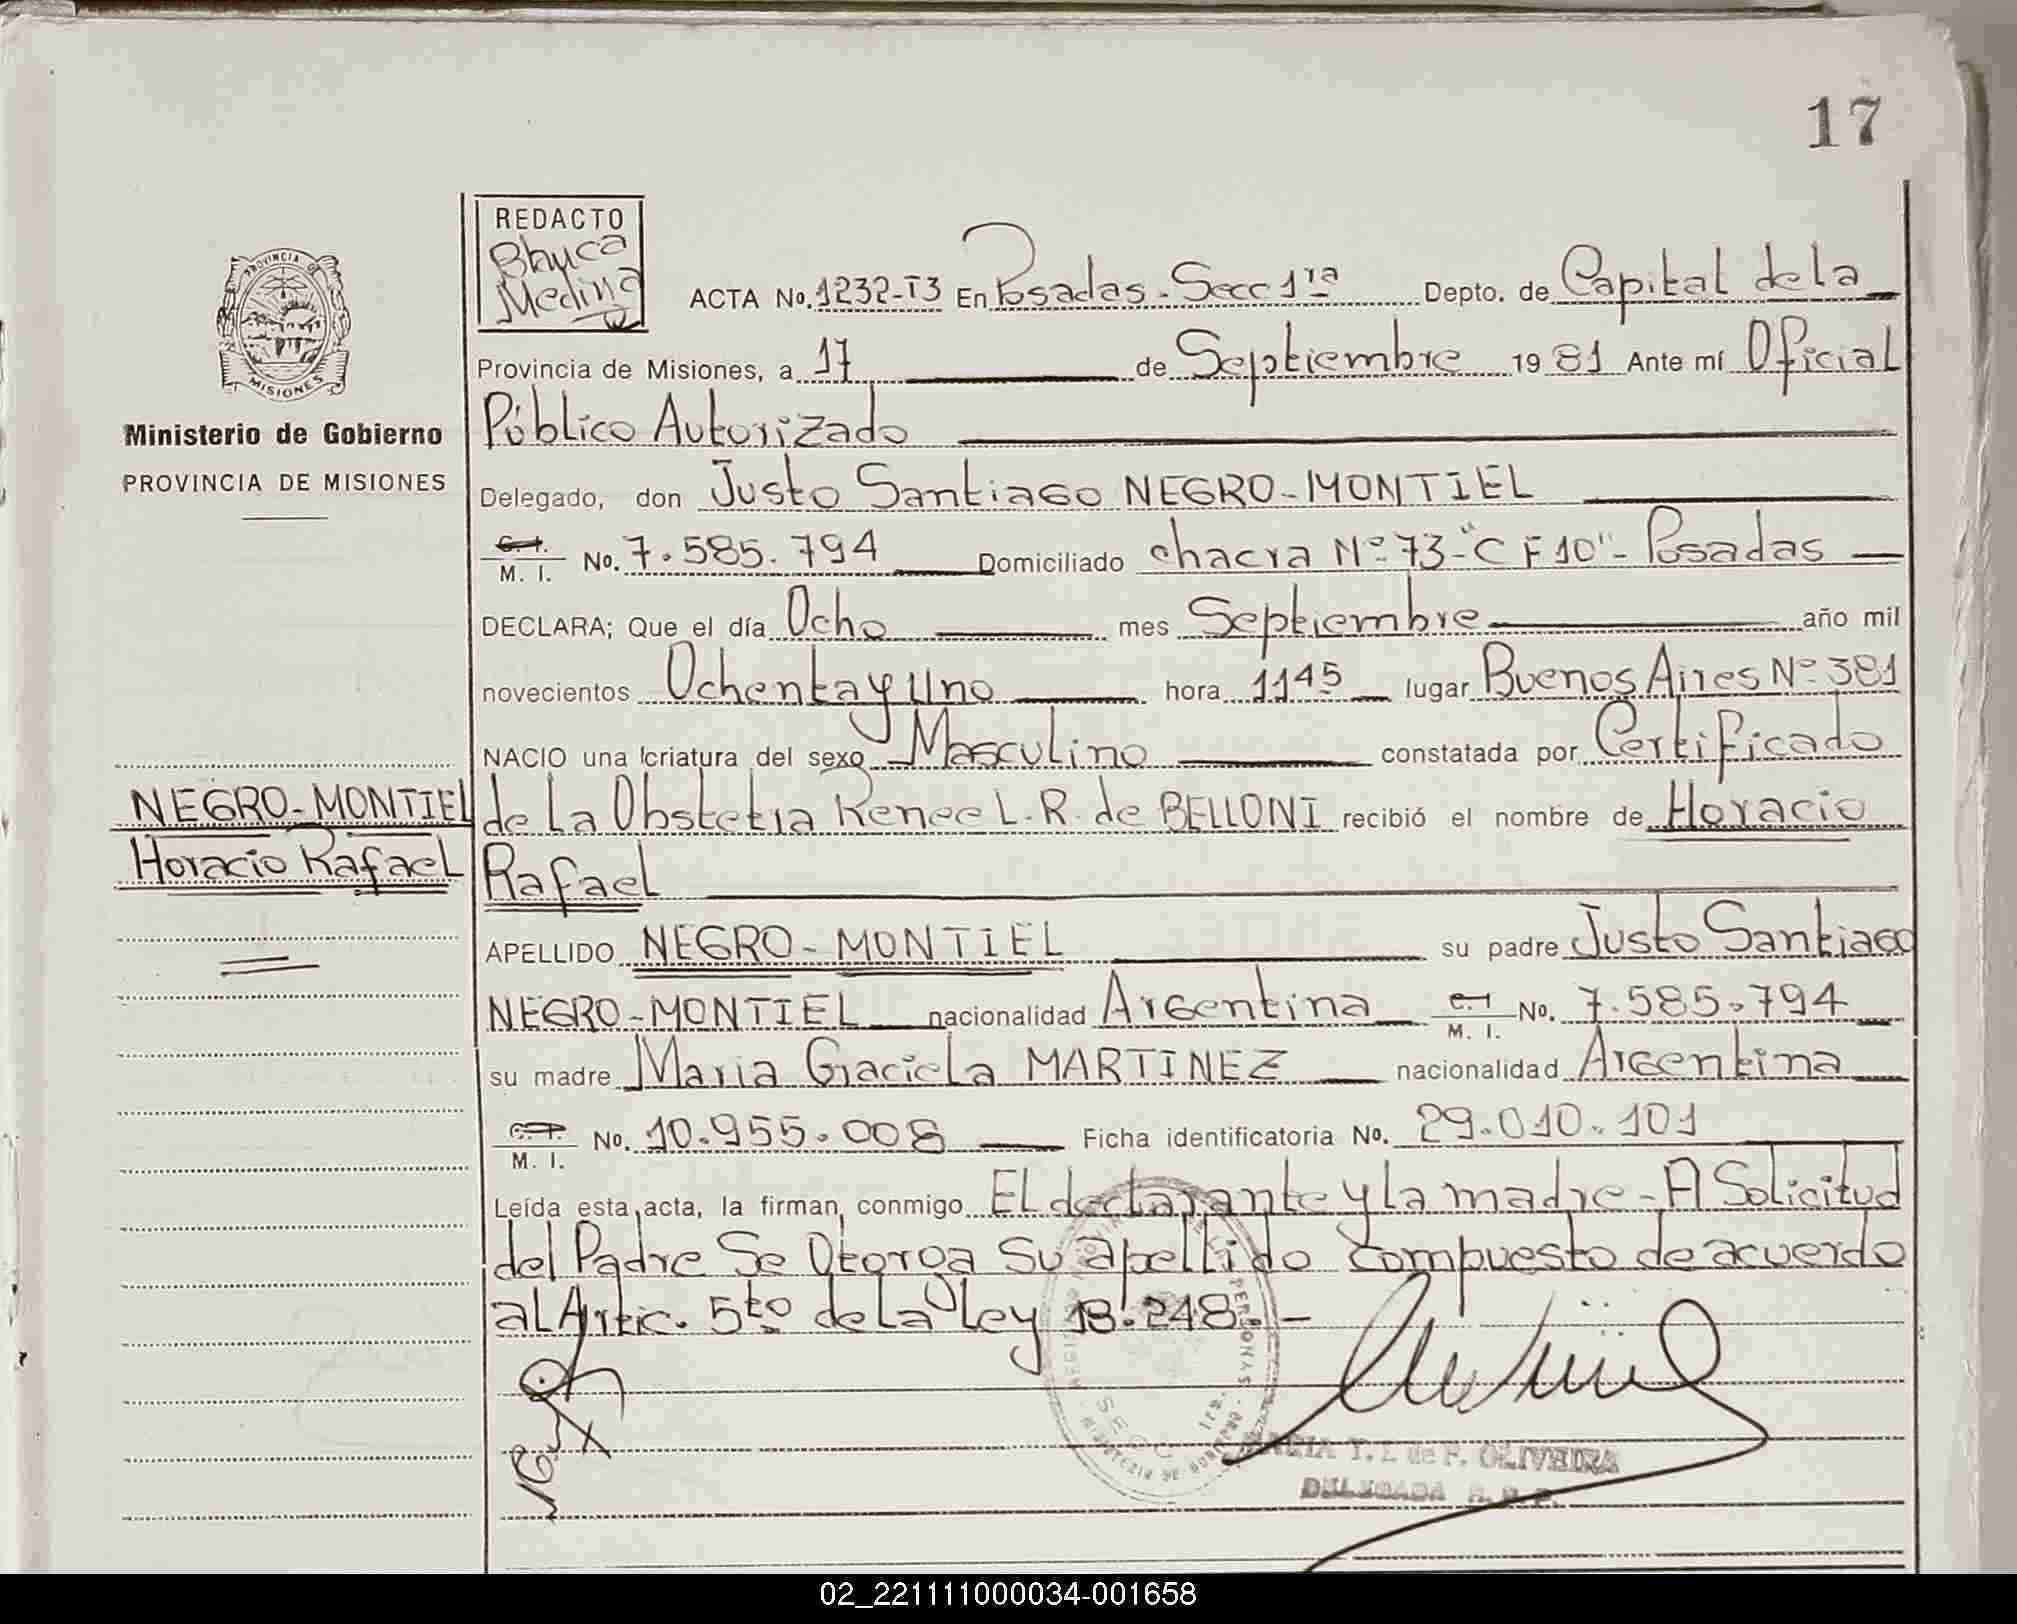 17
REDACTO
Medina
PROVINCIA DE
MISIONES
ACTA No. 1232-T3 En Posadas - Secc 1ra Depto. de Capital de la
Provincia de Misiones, a 17 de Septiembre 1981 Ante mí Oficial
Público Autorizado
Ministerio de Gobierno
PROVINCIA DE MISIONES
Delegado, don Justo Santiago NEGRO-MONTIEL
C. I.
M. I. No. 7.585.794 Domiciliado chacra Nº 73-"C F 10"- Posadas
DECLARA; Que el día Ocho mes Septiembre año mil
novecientos Ochenta y Uno hora 1145 lugar Buenos Aires Nº 381
NACIO una criatura del sexo Masculino constatada por Certificado
NEGRO-MONTIEL
Horacio Rafael
de La Obstetra Renee L. R. de BELLONI recibió el nombre de Horacio
Rafael
APELLIDO NEGRO-MONTIEL su padre Justo Santiago
NEGRO-MONTIEL nacionalidad Argentina C. I. M. I. No. 7.585.794
su madre Maria Graciela MARTINEZ nacionalidad Argentina
C. I. M. I. No. 10.955.008 Ficha identificatoria No. 29.010.101
Leída esta acta, la firman conmigo El declarante y la madre - A Solicitud
del Padre Se Otorga Su apellido compuesto de acuerdo
al Artic. 5to de la ley 18.248 -
OLIVEIRA
DELEGADA
02_221111000034-001658